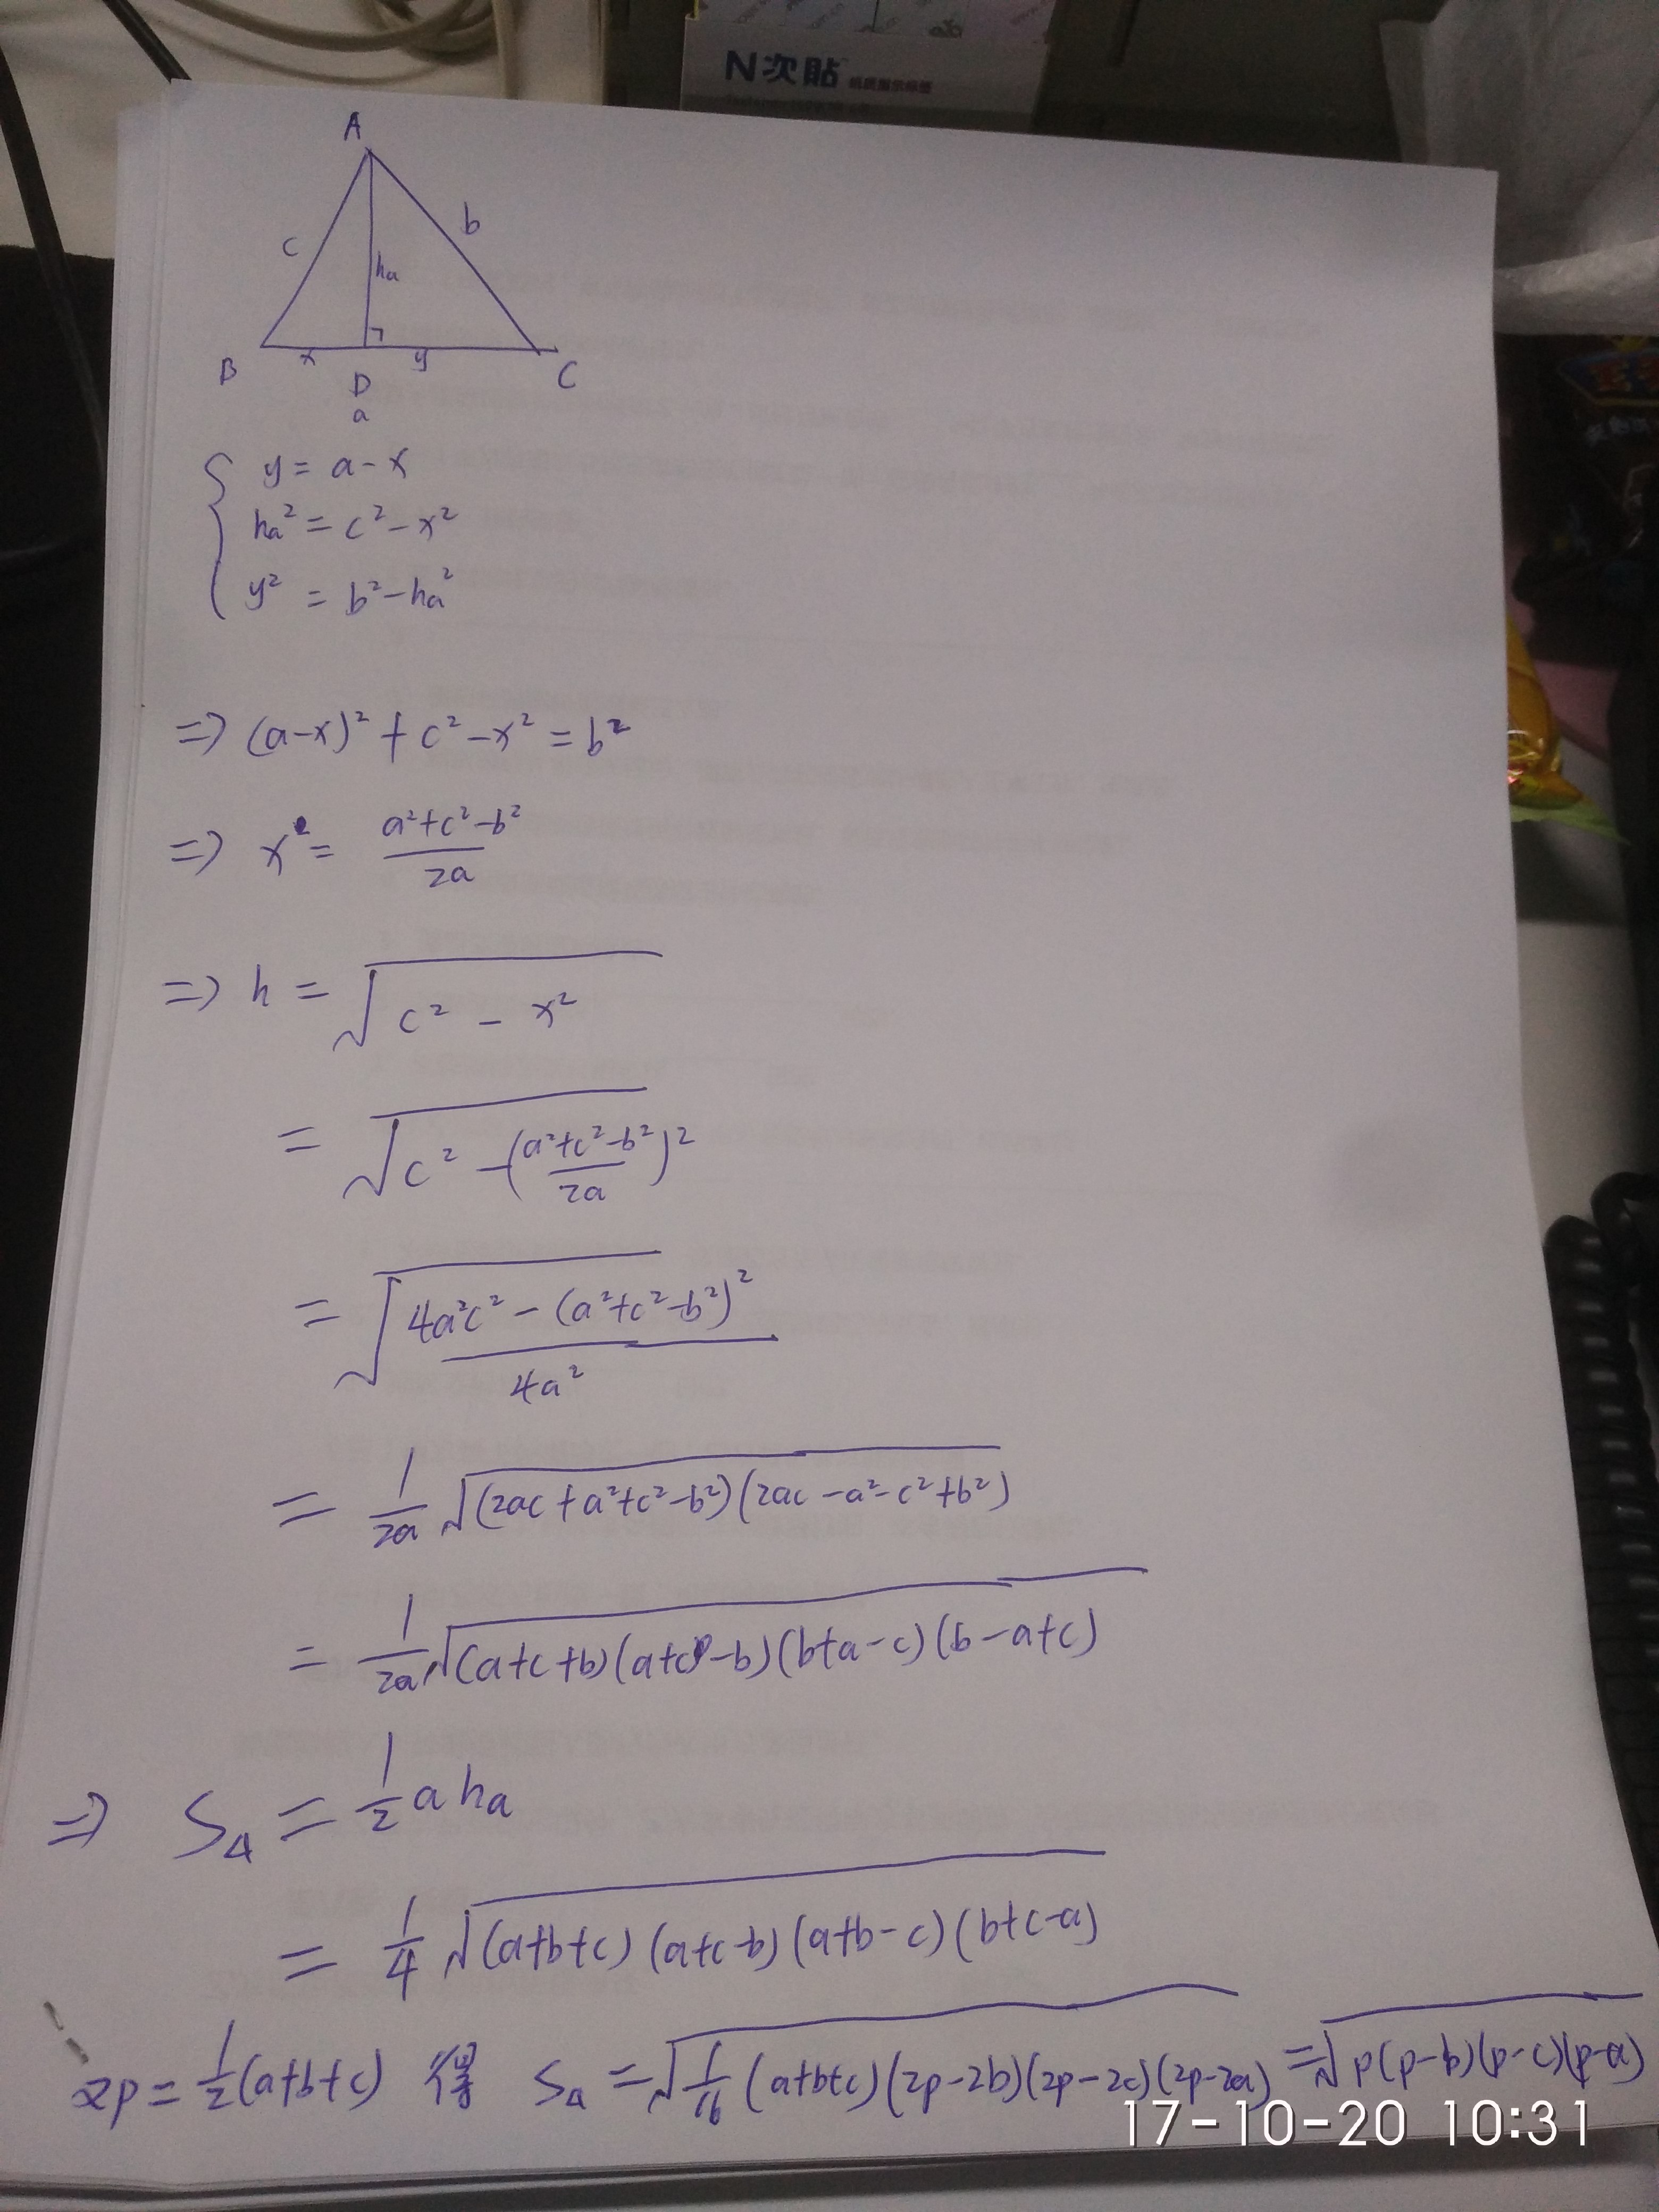 N次貼
A
c
b
ha
B
x
y
C
D
a
y = a - x
ha² = c² - x²
y² = b² - ha²
=> (a-x)² + c² - x² = b²
=> x = (a²+c²-b²)/2a
=> h = √(c² - x²)
= √(c² - ((a²+c²-b²)/2a)²)
= √((4a²c² - (a²+c²-b²)²)/4a²)
= 1/2a √((2ac+a²+c²-b²)(2ac-a²-c²+b²))
= 1/2a √((a+c+b)(a+c-b)(b+a-c)(b-a+c))
=> S△ = 1/2 a ha
= 1/4 √((a+b+c)(a+c-b)(a+b-c)(b+c-a))
2p = 1/2(a+b+c) 得 S△ = √(1/16 (a+b+c)(2p-2b)(2p-2c)(2p-2a)) = √(p(p-b)(p-c)(p-a))
17-10-20 10:31